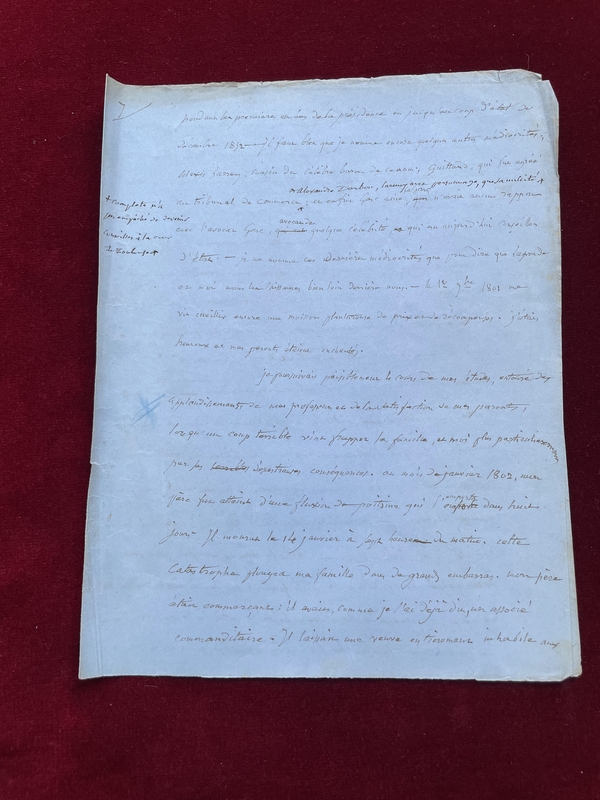 7
pendant les premières années de la présidence ou jusqu'au coup d'état de
décembre 1852 — il faut bien que je nomme encore quelques autres médiocrités,
cousin du célèbre baron de ce nom; Guittard, qui fut agréé
+ Alexandre personnage, que sa nullité +
au tribunal de commerce; et enfin Gr aucun rapport
+ complète n'a
pas empêché de devenir
conseiller à la cour
de Toulouse +
avec l'avocat avocat de quelque célébrité et qui est aujourd'hui conseiller
d'état. — je ne nomme ces dernières médiocrités que pour dire que
et moi nous les laissions bien loin derrière nous. — le 12 7bre 1801 me
vit cueillir encore une moisson plantureuse de prix et de couronnes. j'étais
heureux et mes parents étaient enchantés.
je poursuivais paisiblement le cours de mes études, entouré des
applaudissements de mes professeurs et de la satisfaction de mes parents,
lorsqu'un coup terrible vint frapper la famille, et moi plus particulièrement
par ses terribles désastreuses conséquences. au mois de janvier 1802, mon
père fut atteint d'une fluxion de poitrine qui l'emporta dans huit
jours. Il mourut le 14 janvier à sept heures du matin. cette
catastrophe plongea ma famille dans de grands embarras. mon père
était commerçant; il avait, comme je l'ai déjà dit, un associé
commanditaire. Il laissait une veuve entièrement inhabile aux